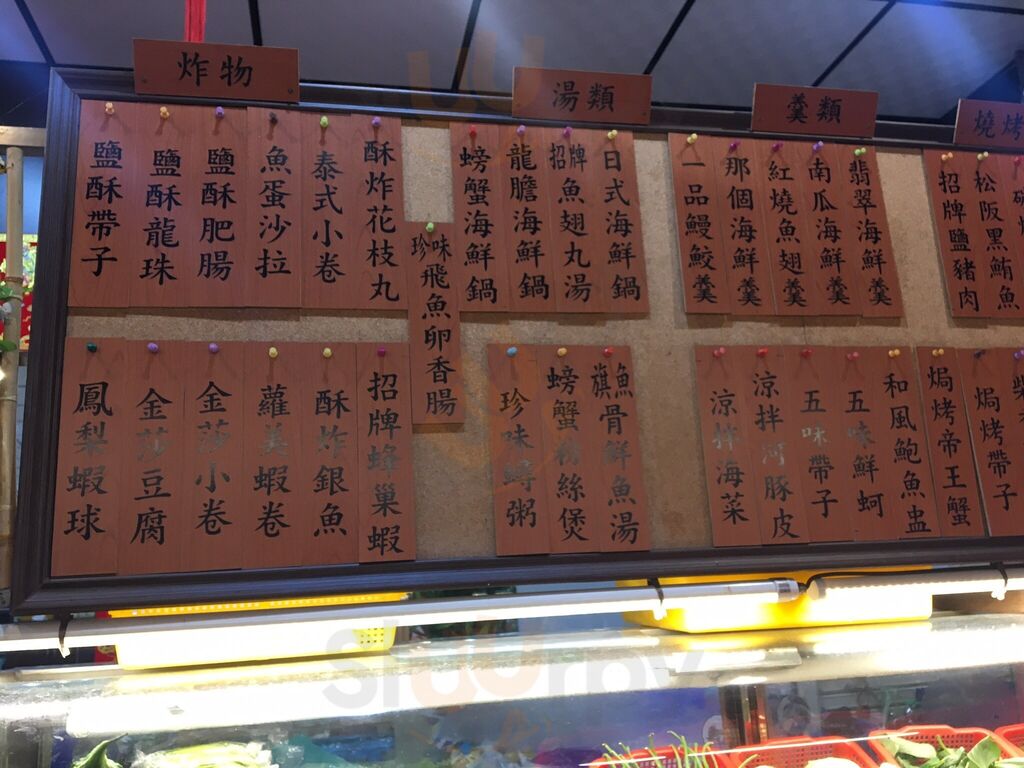 炸物
湯類
羹類
燒烤
鹽酥帶子
鹽酥龍珠
鹽酥肥腸
魚蛋沙拉
泰式小卷
酥炸花枝丸
珍味飛魚卵香腸
螃蟹海鮮鍋
龍膽海鮮鍋
招牌魚翅丸湯
日式海鮮鍋
一品鰻鮫羹
那個海鮮羹
紅燒魚翅羹
南瓜海鮮羹
翡翠海鮮羹
招牌鹽豬肉
松阪黑鮪魚
鳳梨蝦球
金莎豆腐
金莎小卷
蘿美蝦卷
酥炸銀魚
招牌蜂巢蝦
珍味蟳粥
螃蟹粉絲煲
旗魚骨鮮魚湯
涼拌海菜
涼拌河豚皮
五味帶子
五味鮮蚵
和風鮑魚盅
焗烤帝王蟹
焗烤帶子
Sluurpy